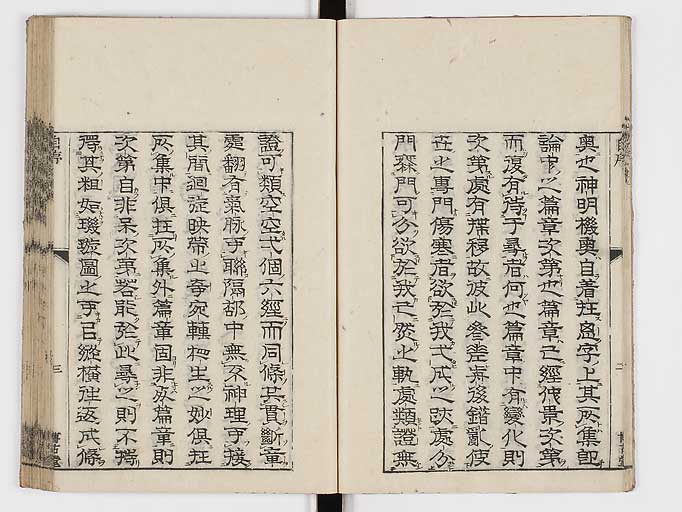 奥也神明機奥自着在字上其所集即
論中之篇章次第也篇章已經次第
而復有待于尋者何也篇章中有變化則
次第處有移故彼此參差前後錯亂使
在之專門傷寒者欲於我弌成之跡處分
門門可分欲於我之軌處類證無
二
證可類空空弌個六經而同條共貫斷章
處翻有氣脉乎聯隔部中無不神理乎接
其間迴旋映帶之奇宛轉相生之妙俱在
所集中俱在所集外篇章固非篇章則
次第自非呆次第若能於此尋之則不特
得其粗如璣璇圖之已縱橫往返成條
自序
三